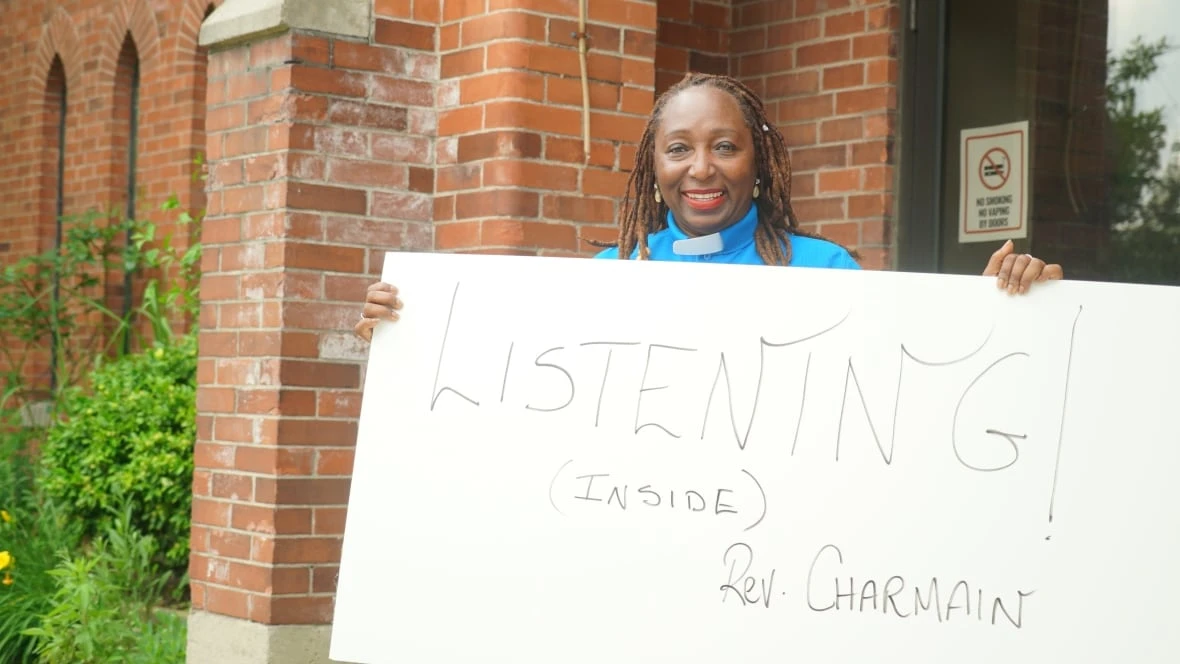 NO SMOKING
NO VAPING
BY DOORS
LISTENING!
(INSIDE)
Rev. CHARMAIN